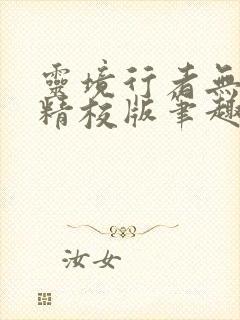 靈境行者無
精校版筆趣
汝女